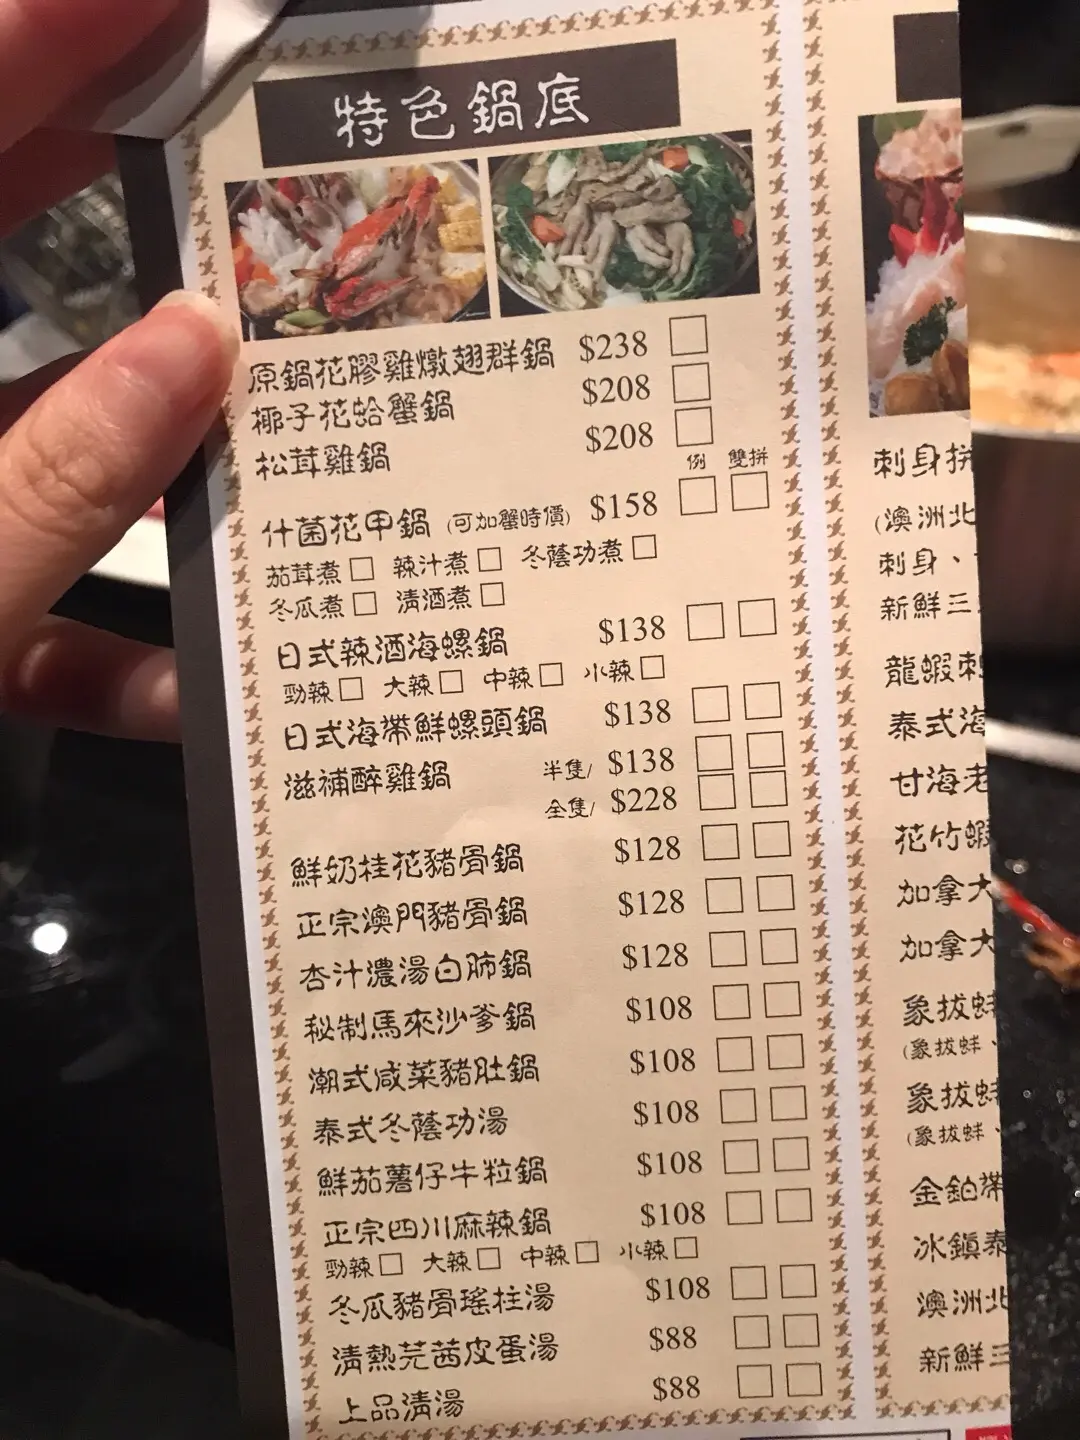 特色鍋底
原鍋花膠雞燉翅群鍋 $238
椰子花蛤蟹鍋 $208
松茸雞鍋 $208
例 雙拼
什菌花甲鍋 (可加蟹時價) $158
茄茸煮 辣汁煮 冬蔭功煮
冬瓜煮 清酒煮
日式辣酒海螺鍋 $138
勁辣 大辣 中辣 小辣
日式海帶鮮螺頭鍋 $138
滋補醉雞鍋 半隻/ $138
全隻/ $228
鮮奶桂花豬骨鍋 $128
正宗澳門豬骨鍋 $128
杏汁濃湯白肺鍋 $128
秘制馬來沙爹鍋 $108
潮式咸菜豬肚鍋 $108
泰式冬蔭功湯 $108
鮮茄薯仔牛粒鍋 $108
正宗四川麻辣鍋 $108
勁辣 大辣 中辣 小辣
冬瓜豬骨瑤柱湯 $108
清熱芫茜皮蛋湯 $88
上品清湯 $88
刺身拼
(澳洲北
刺身、
新鮮三
龍蝦刺
泰式海
甘海老
花竹蝦
加拿大
加拿大
象拔蚌
(象拔蚌、
象拔蚌
(象拔蚌、
金鉑帶
冰鎮泰
澳洲北
新鮮三